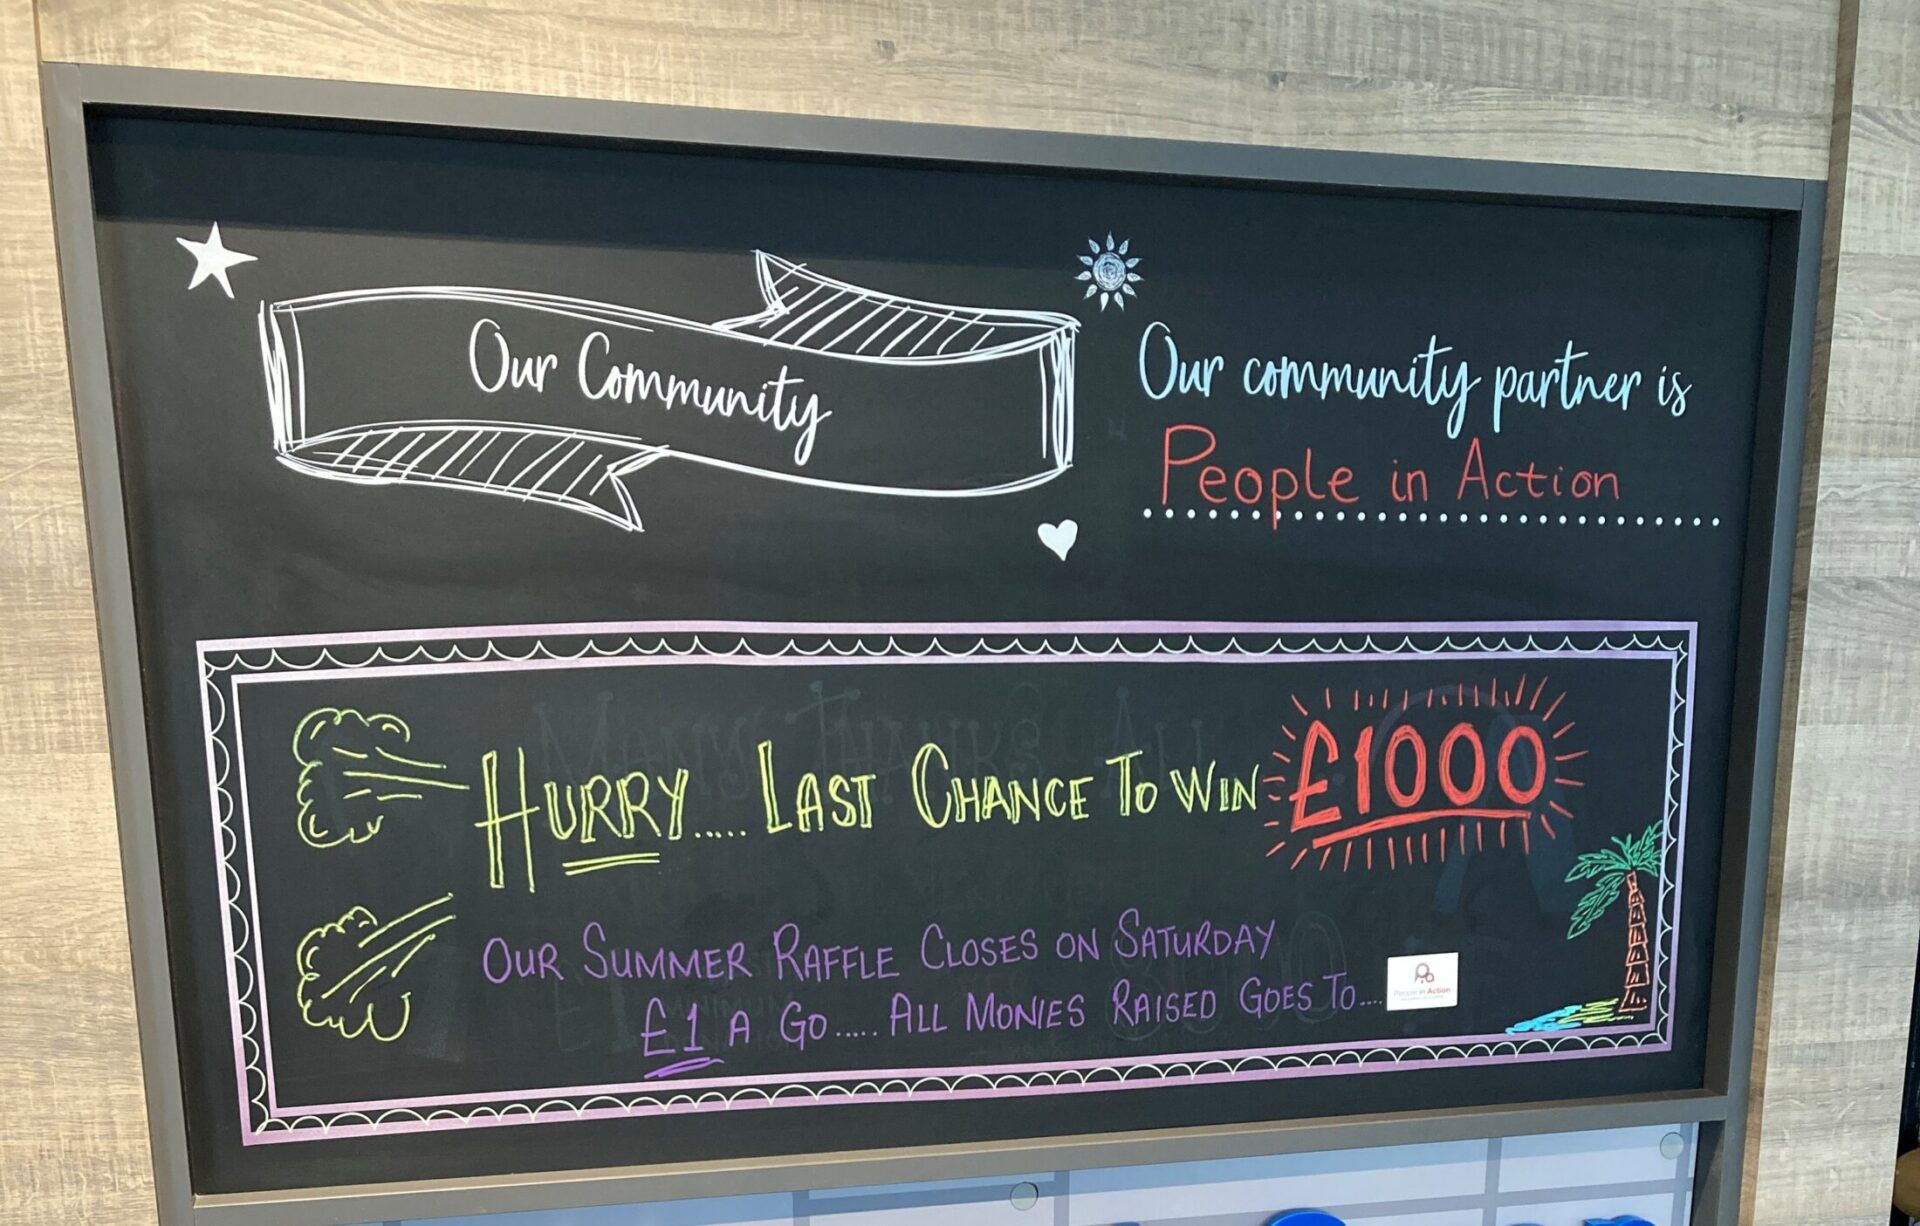 Our Community
Our community partner is
People in Action
HURRY..... LAST CHANCE TO WIN £1000
OUR SUMMER RAFFLE CLOSES ON SATURDAY
£1 A GO..... ALL MONIES RAISED GOES TO....
People in Action